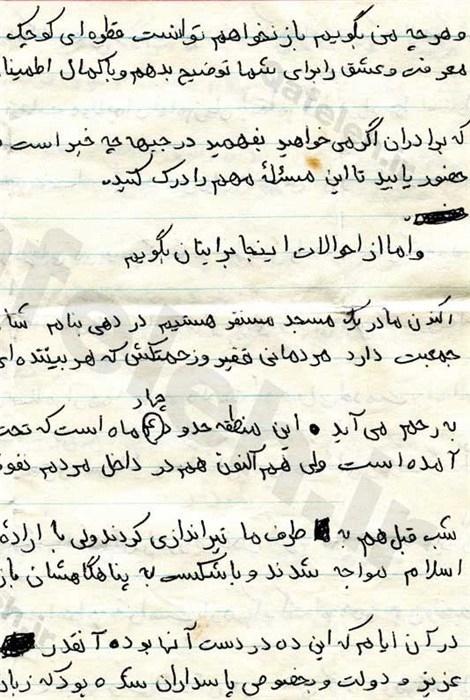 و هر چه من بگویم باز نخواهم توانست قطره‌ای کوچک
معرفت و عشق را برای شما توضیح بدهم و با کمال اطمینا
که برادران اگر می‌خواهید بفهمید در جبهه چه خبر است
حضور یابید تا این مسئلهٔ مهم را درک کنید.
و اما از احوالات اینجا برایتان بگویم
اکنون ما در یک مسجد مستقر هستیم در دهی بنام
جمعیت دارد مردمانی فقیر و زحمتکش که هر بیننده‌ای
چهار
به رحم می‌آید. این منطقه حدود ۴ ماه است که تحت
آمده است ولی هم اکنون هم در داخل مردم نفوذ
شب قبل هم به طرف ما تیراندازی کردند ولی با اراده
اسلام مواجه شدند و با شکست به پناهگاهشان باز
در آن ایام که این ده در دست آنها بوده آنقدر
و دولت و بخصوص پاسداران شده بود که زبا
gafeleh.ir